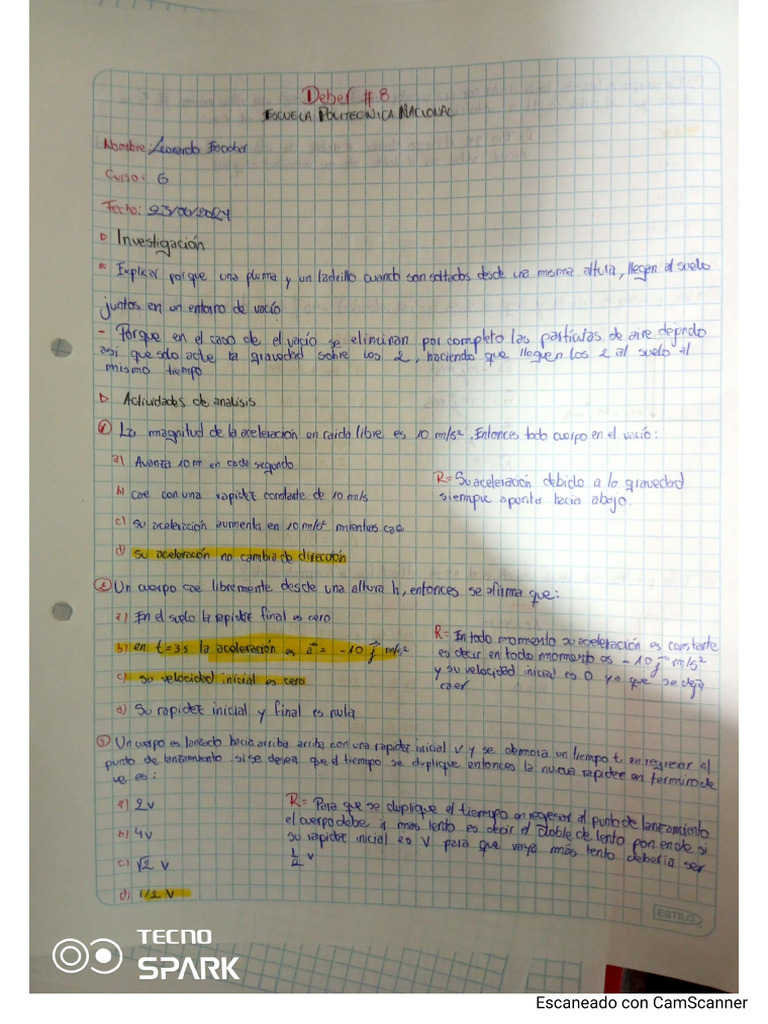 Deber # 8
ESCUELA POLITECNICA NACIONAL
Nombre: Leonardo Escobar
Curso: 6
Fecha: 23/06/2024
Investigación
Explicar porque una pluma y un ladrillo cuando son soltados desde una misma altura, llegan al suelo
juntos en un entorno de vacío
- Porque en el caso de el vacío se eliminan por completo las partículas de aire dejando
así que solo actue la gravedad sobre los 2, haciendo que lleguen los 2 al suelo al
mismo tiempo
Actividades de analisis
1) La magnitud de la aceleración en caida libre es 10 m/s². Entonces todo cuerpo en el vacío:
a) Avanza 10m en cada segundo
b) cae con una rapidez constante de 10 m/s
c) su aceleración aumenta en 10 m/s² mientras cae
d) su aceleración no cambia de dirección
R= Su aceleración debido a la gravedad
siempre apunta hacia abajo.
2) Un cuerpo cae libremente desde una altura h, entonces se afirma que:
a) En el suelo la rapidez final es cero
b) en t=3s la aceleración es a⃗ = -10 j⃗ m/s²
c) su velocidad inicial es cero
d) Su rapidez inicial y final es nula
R= En todo momento su aceleración es constante
es decir en todo momento es -10 j⃗ m/s²
y su velocidad inicial es 0 ya que se deja
caer
3) Un cuerpo es lanzado hacia arriba arriba con una rapidez inicial v y se demora un tiempo t en regresar al
punto de lanzamiento. si se desea que el tiempo se duplique entonces la nueva rapidez en termino de
ve es:
a) 2v
b) 4v
c) √2 v
d) 1/2 v
R= Para que se duplique el tiempo en regresar al punto de lanzamiento
el cuerpo debe ir mas lento es decir el doble de lento por ende si
su rapidez inicial es V para que vaya más lento deberia ser
1/2 v
ESTILO
TECNO
SPARK
Escaneado con CamScanner